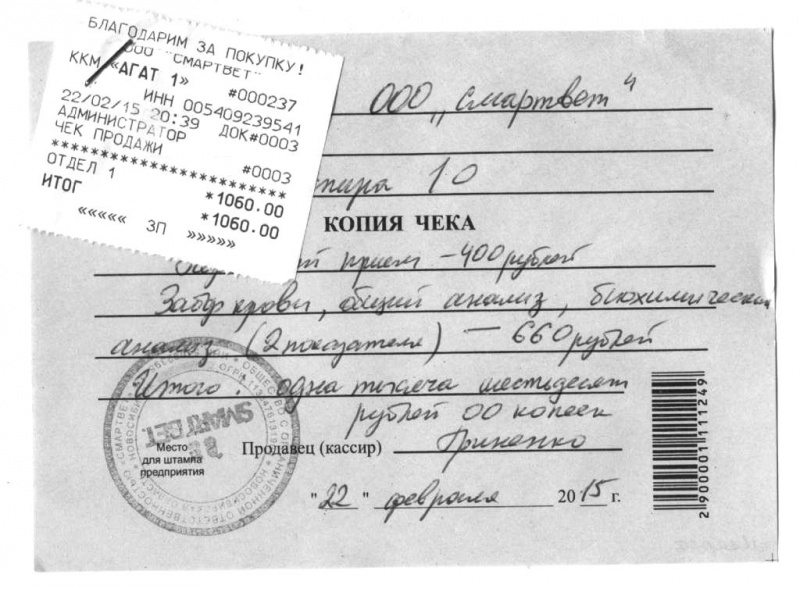 БЛАГОДАРИМ ЗА ПОКУПКУ!
ООО "СМАРТВЕТ"
ККМ «АГАТ 1» #000237
ИНН 005409239541
22/02/15 20:39 ДОК#0003
АДМИНИСТРАТОР
ЧЕК ПРОДАЖИ #0003
************************
ОТДЕЛ 1 *1060.00
ИТОГ *1060.00
««««« ЗП »»»»»
ООО „Смартвет"
10
КОПИЯ ЧЕКА
прием - 400 рублей
Забор крови, общий анализ, биохимический
анализ (2 показателя) - 660 рублей
Итого: одна тысяча шестьдесят
рублей 00 копеек
Продавец (кассир) Гриненко
Место
для штампа
предприятия
"22" февраля 2015 г.
SMARTВЕТ
2 900001 111249